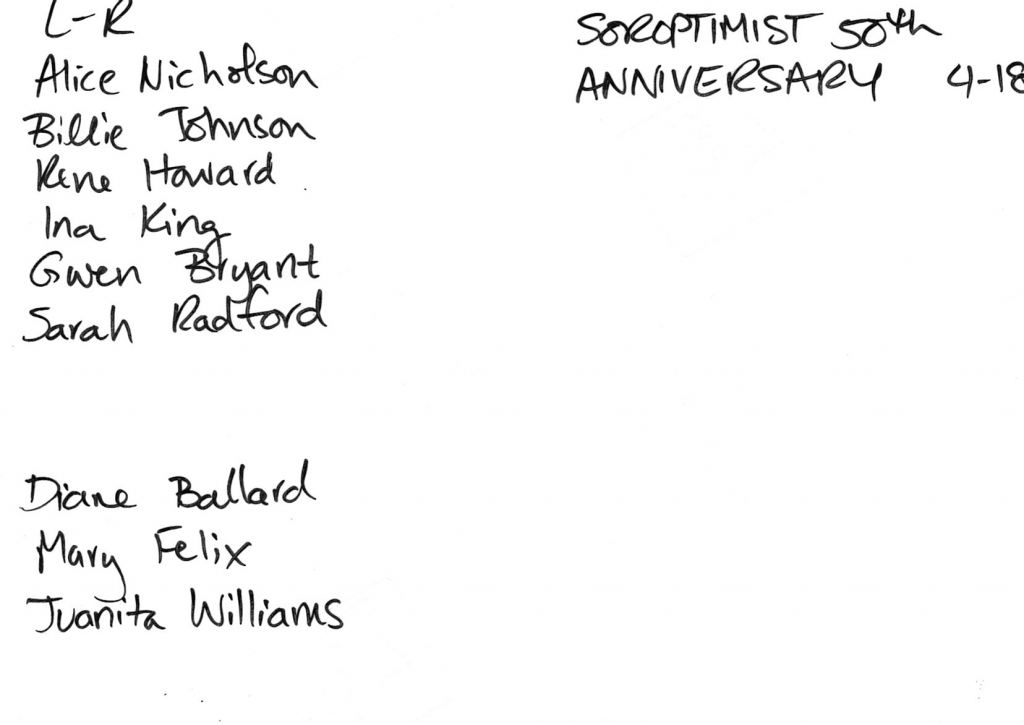 L-R
Alice Nicholson
Billie Johnson
Rene Howard
Ina King
Gwen Bryant
Sarah Radford
Diane Ballard
Mary Felix
Juanita Williams
SOROPTIMIST 50th
ANNIVERSARY 4-18